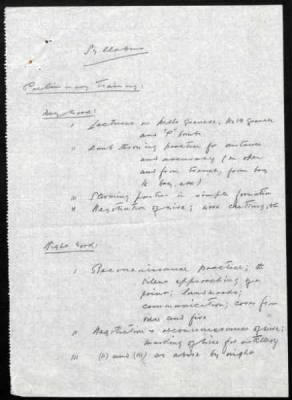 Syllabus
Preliminary Training:
Day Work:
i Lectures on Mills grenade, No 36 grenade
and "P" bombs
ii Bomb throwing practice for distance
and accuracy (in open
and from trench, from bay
to bay, etc)
iii Storming parties in simple formation
iv Negotiation of wire; wire cutting, etc
Night Work:
i Reconnaissance practice; the
silent approaching of a
point; landmarks;
communication; cover from
view and fire
ii Negotiation & reconnaissance of wire;
marking of wire for artillery
iii (ii) and (iii) as above by night